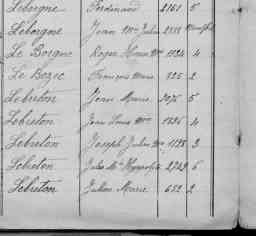 Leborgne Ferdinand 2161 5
Leborgne Jean Mie Julien 2118
Le Borgne Roger Marie 1124 4
Le Bozec François Marie 825 2
Lebreton Jean Marie 3075 5
Lebreton Jean Louis Mie 1696 4
Lebreton Joseph Julien Mie 1128 3
Lebreton Jules Mie 2749 5
Lebreton Julien Marie 652 2